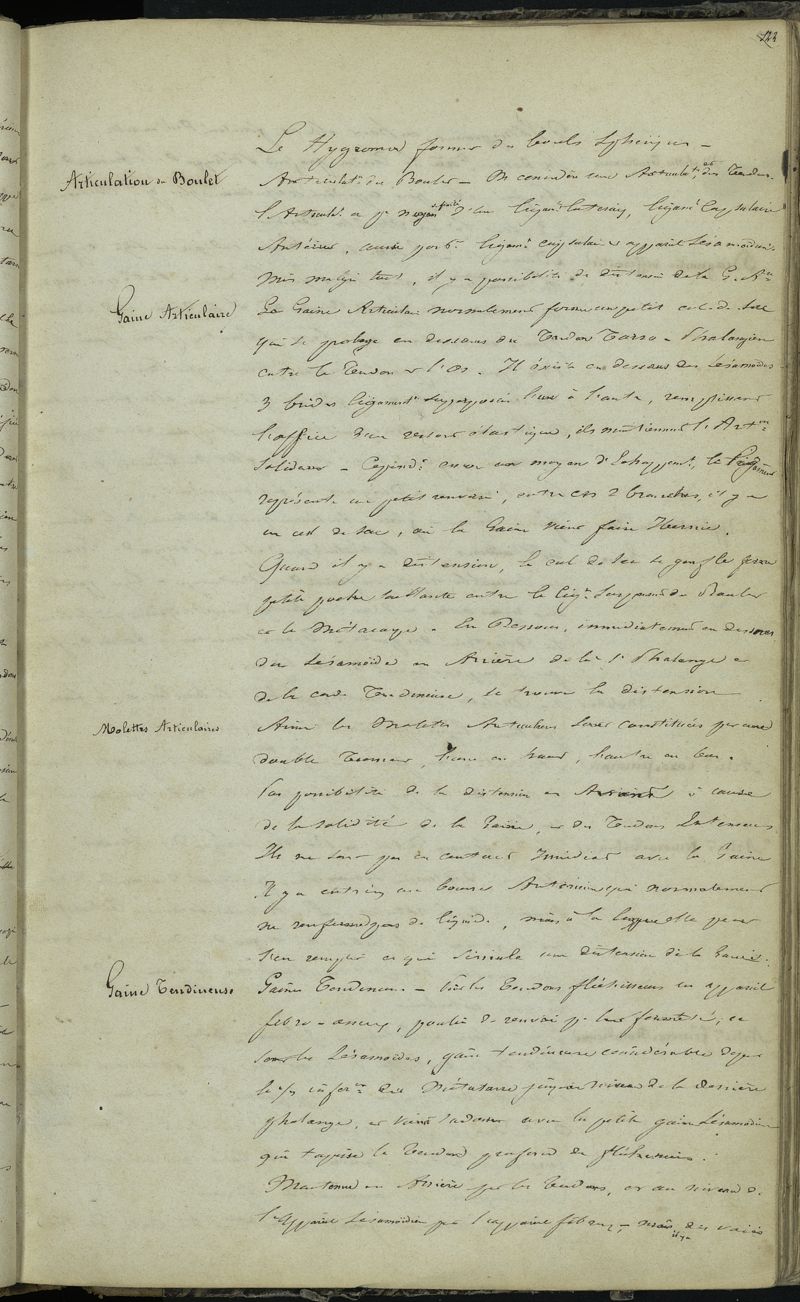 122
Le Hygroma forme des boules sphériques —
Articulation du Boulet
Articulat. du Boulet — On considère une Articulat. et des Tendons
l'Articulat. a pr moyen d'union ligamt latéraux, ligamt Capsulaire
Antérieur, ligamt capsulaire appareil Sésamoïdien
Mais malgré tout, il y a possibilité de distension de la G. Are
Gaine Articulaire
La Gaine Articulaire normalement forme un petit cul-de-sac
qui se prolonge en dessous du Tendon Tarso-Phalangien
entre le Tendon et l'Os. Il existe en dessous des Sésamoïdes
3 brides ligament. superposées l'une à l'autre, remplissant
l'office d'un ressort élastique, ils maintiennent l'Artion
Solidaire — Cependt un moyen d'Echappemt, le ligament
représente un petit renversé, entre ces 2 branches, il y a
un cul de sac, où la Gaine vient faire Hernie.
Quand il y a distension, le cul de sac se gonfle forme
petite poche saillante entre le ligt Suspenseur du Boulet
et le Métacarpe. En Dessous, immédiatement en dessous
des Sésamoïdes en Arrière de la 1re Phalange et
de la corde Tendineuse, se trouve la distension
Molettes Articulaires
Ainsi les Molettes Articulaires sont constituées par une
double Tumeur, l'une en haut, l'autre en bas.
Pas possibilité de la distension en Avant à cause
de la solidité de la Gaine, et des Tendons Extenseurs
Ils ne sont pas en contact Immédiat avec la Gaine
Il y a entr'eux une bourse Antérieure qui normalement
ne renferme pas de liquide, mais à la longue elle peut
s'en remplir ce qui simule une distension de la Gaine.
Gaine Tendineuse
Gaine Tendineuse — les Tendons fléchisseurs un appareil
fibro-osseux, poulie de renvoi pr leur fonction, et
sur les Sésamoïdes, gaine tendineuse considérable depuis
le infér. du Métatarse jusqu'au niveau de la dernière
phalange, et vient s'adosser avec la petite gaine Sésamoïdienne
qui tapisse le Tendon profond du fléchisseur.
Maintenue en Arrière par les Tendons, et au niveau de
l'appareil Sésamoïdien par l'appareil fibreux, — mais il y a des voies